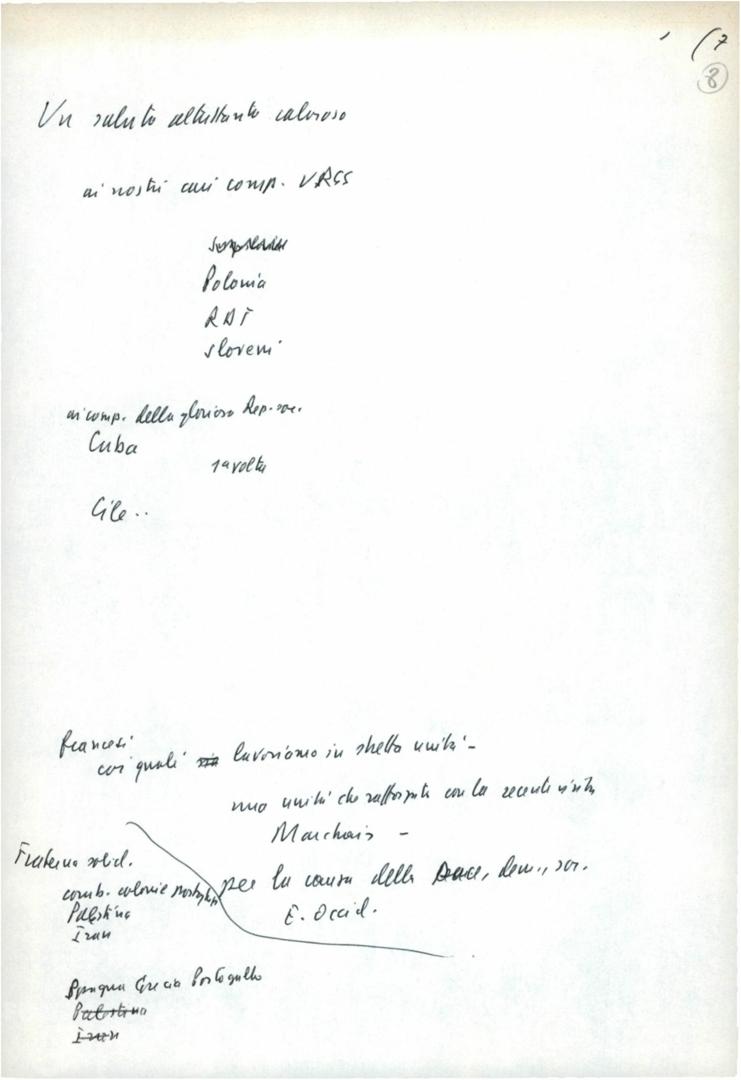 (7
8
Un saluto altrettanto caloroso
ai nostri cari comp. URSS
Polonia
RDT
sloveni
ai comp. della gloriosa Rep. soc.
Cuba
1a volta
Cile..
francesi
coi quali lavoriamo in stretta unità -
una unità che rafforzata con la recente visita
Marchais -
per la causa della pace, dem., soc.
E. Occid.
Fraterna solid.
comb. colonie portoghesi
Palestina
Iran
Spagna Grecia Portogallo
Palestina
Iran